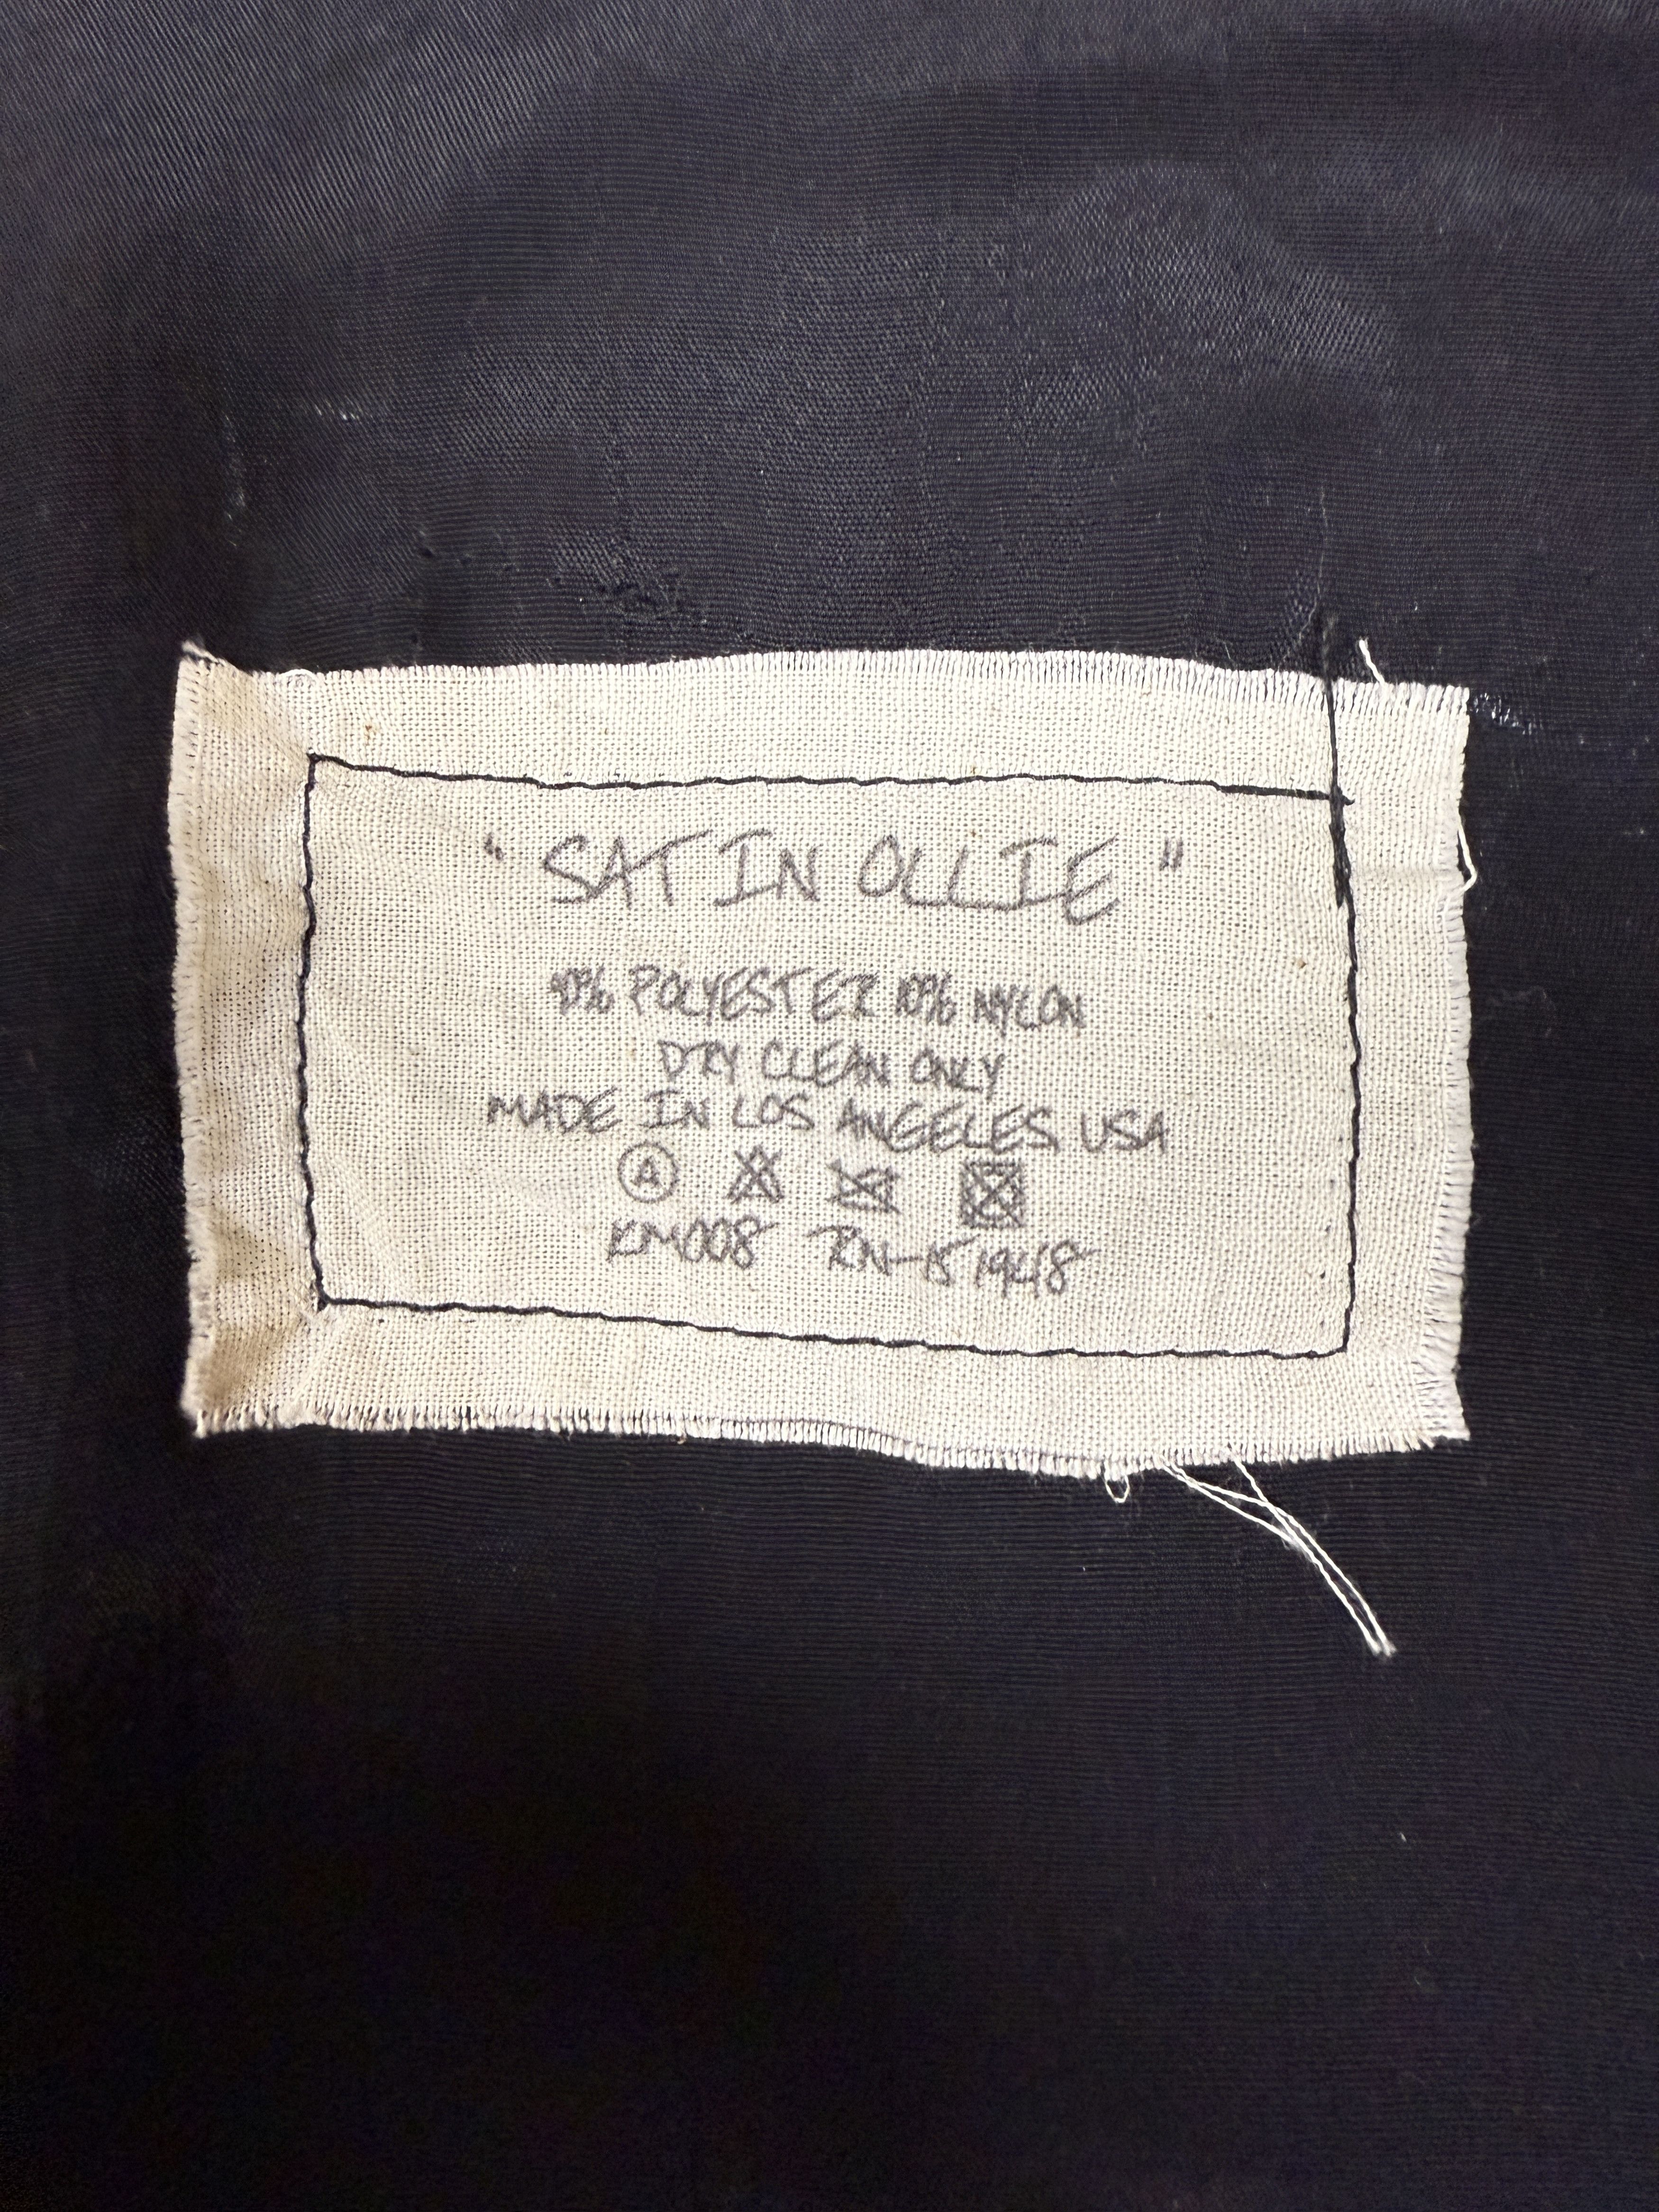 "SATIN OLLIE"
90% POLYESTER 10% NYLON
DRY CLEAN ONLY
MADE IN LOS ANGEELES USA
A
KM008 RN-151948